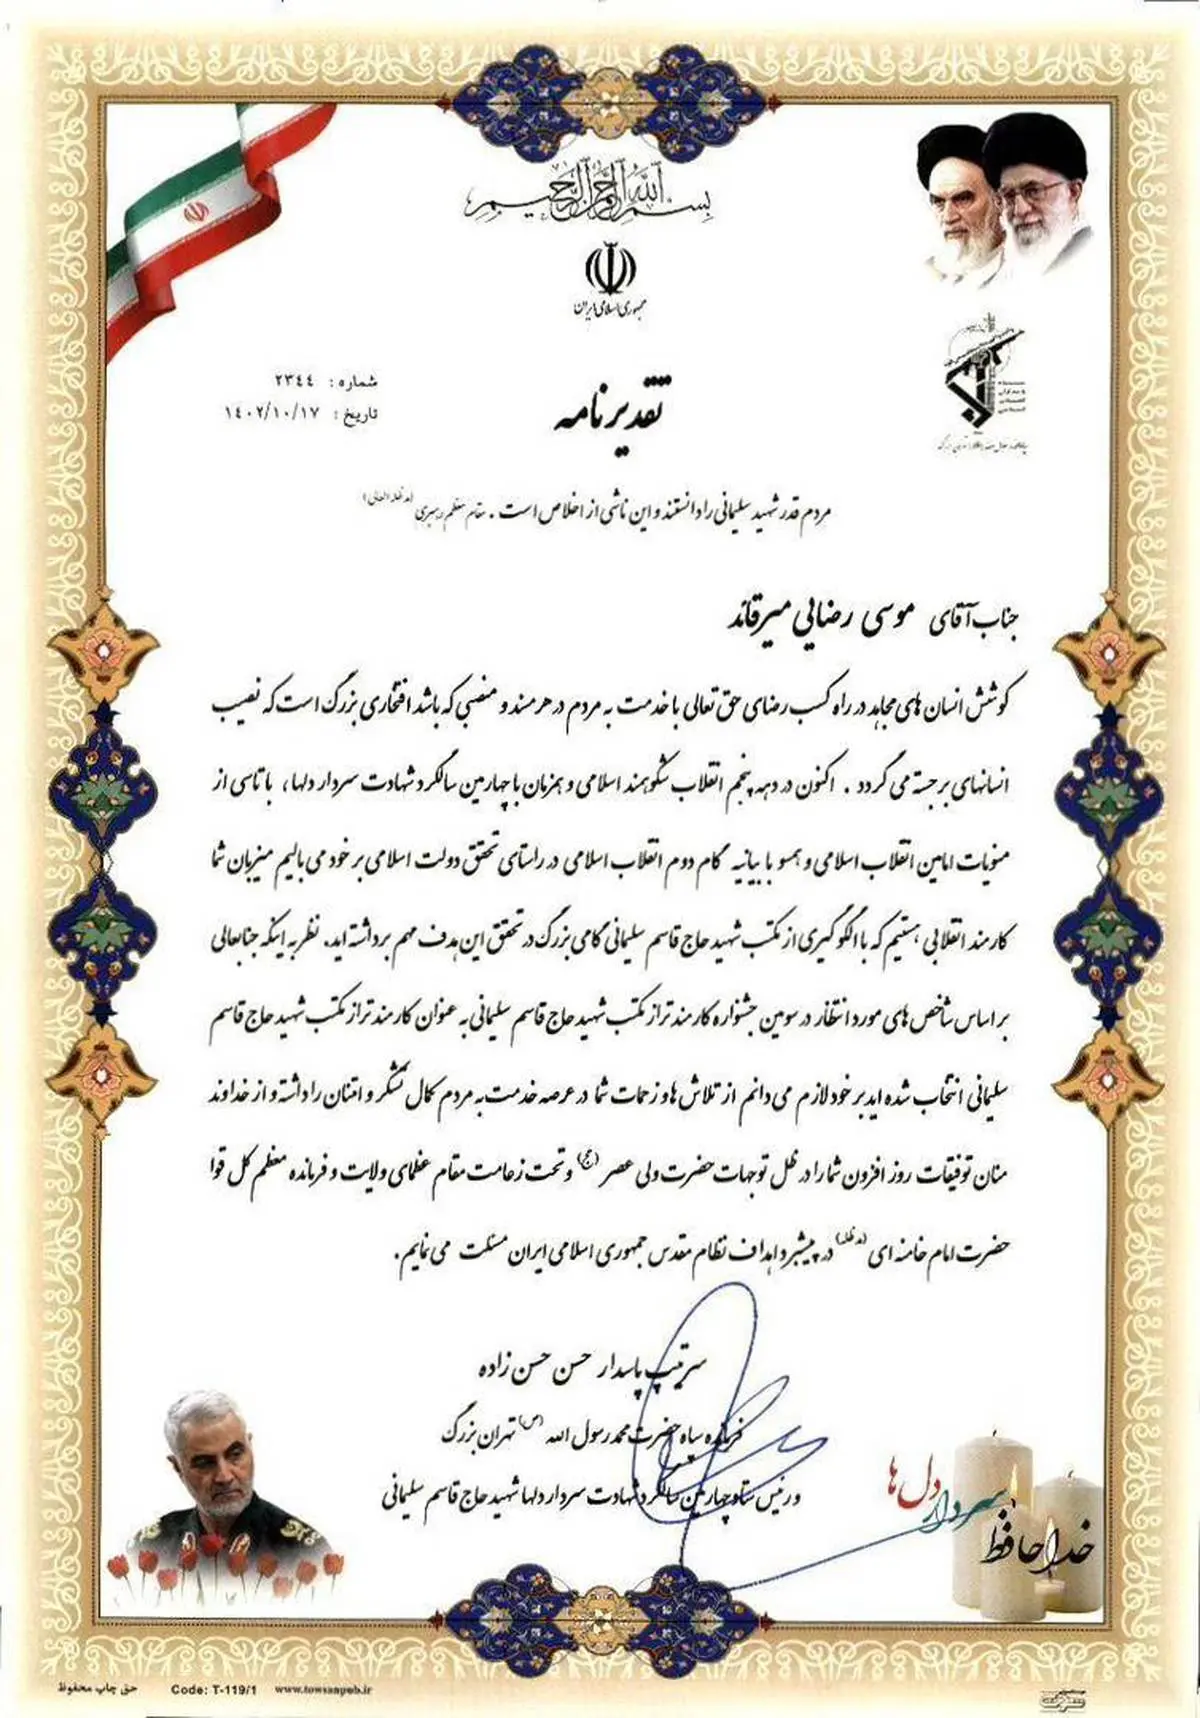 بسم الله الرحمن الرحیم
جمهوری اسلامی ایران
شماره : ٢٣٤٤
تاریخ : ١٤٠٢/١٠/١٧
تقدیرنامه
مردم قدر شهید سلیمانی را دانستند و این ناشی از اخلاص است . مقام معظم رهبری (مدظله العالی)
جناب آقای موسی رضایی میرقائد
کوشش انسان های مجاهد در راه کسب رضای حق تعالی با خدمت به مردم در هر مسند و منصبی که باشد افتخاری بزرگ است که نصیب
انسانهای برجسته می گردد . اکنون در دهه پنجم انقلاب شکوهمند اسلامی و همزمان با چهارمین سالگرد شهادت سردار دلها، با تاسی از
منویات امامین انقلاب اسلامی و همسو با بیانیه گام دوم انقلاب اسلامی در راستای تحقق دولت اسلامی بر خود می بالیم میزبان شما
کارمند انقلابی هستیم که با الگوگیری از مکتب شهید حاج قاسم سلیمانی گامی بزرگ در تحقق این هدف مهم برداشته اید. نظر به اینکه جنابعالی
بر اساس شاخص های مورد انتظار در سومین جشنواره کارمند تراز مکتب شهید حاج قاسم سلیمانی به عنوان کارمند تراز مکتب شهید حاج قاسم
سلیمانی انتخاب شده اید بر خود لازم می دانم از تلاش ها و زحمات شما در عرصه خدمت به مردم کمال تشکر و امتنان را داشته و از خداوند
منان توفیقات روز افزون شما را در ظل توجهات حضرت ولی عصر (عج) و تحت زعامت مقام عظمای ولایت و فرمانده معظم کل قوا
حضرت امام خامنه ای (مدظله) در پیشبرد اهداف نظام مقدس جمهوری اسلامی ایران مسئلت می نمایم.
سرتیپ پاسدار حسن حسن زاده
فرمانده سپاه حضرت محمد رسول الله (ص) تهران بزرگ
و رئیس ستاد چهارمین سالگرد شهادت سردار دلها شهید حاج قاسم سلیمانی
خداحافظ سردار دل ها
حق چاپ محفوظ Code: T-119/1 www.towsanpub.ir